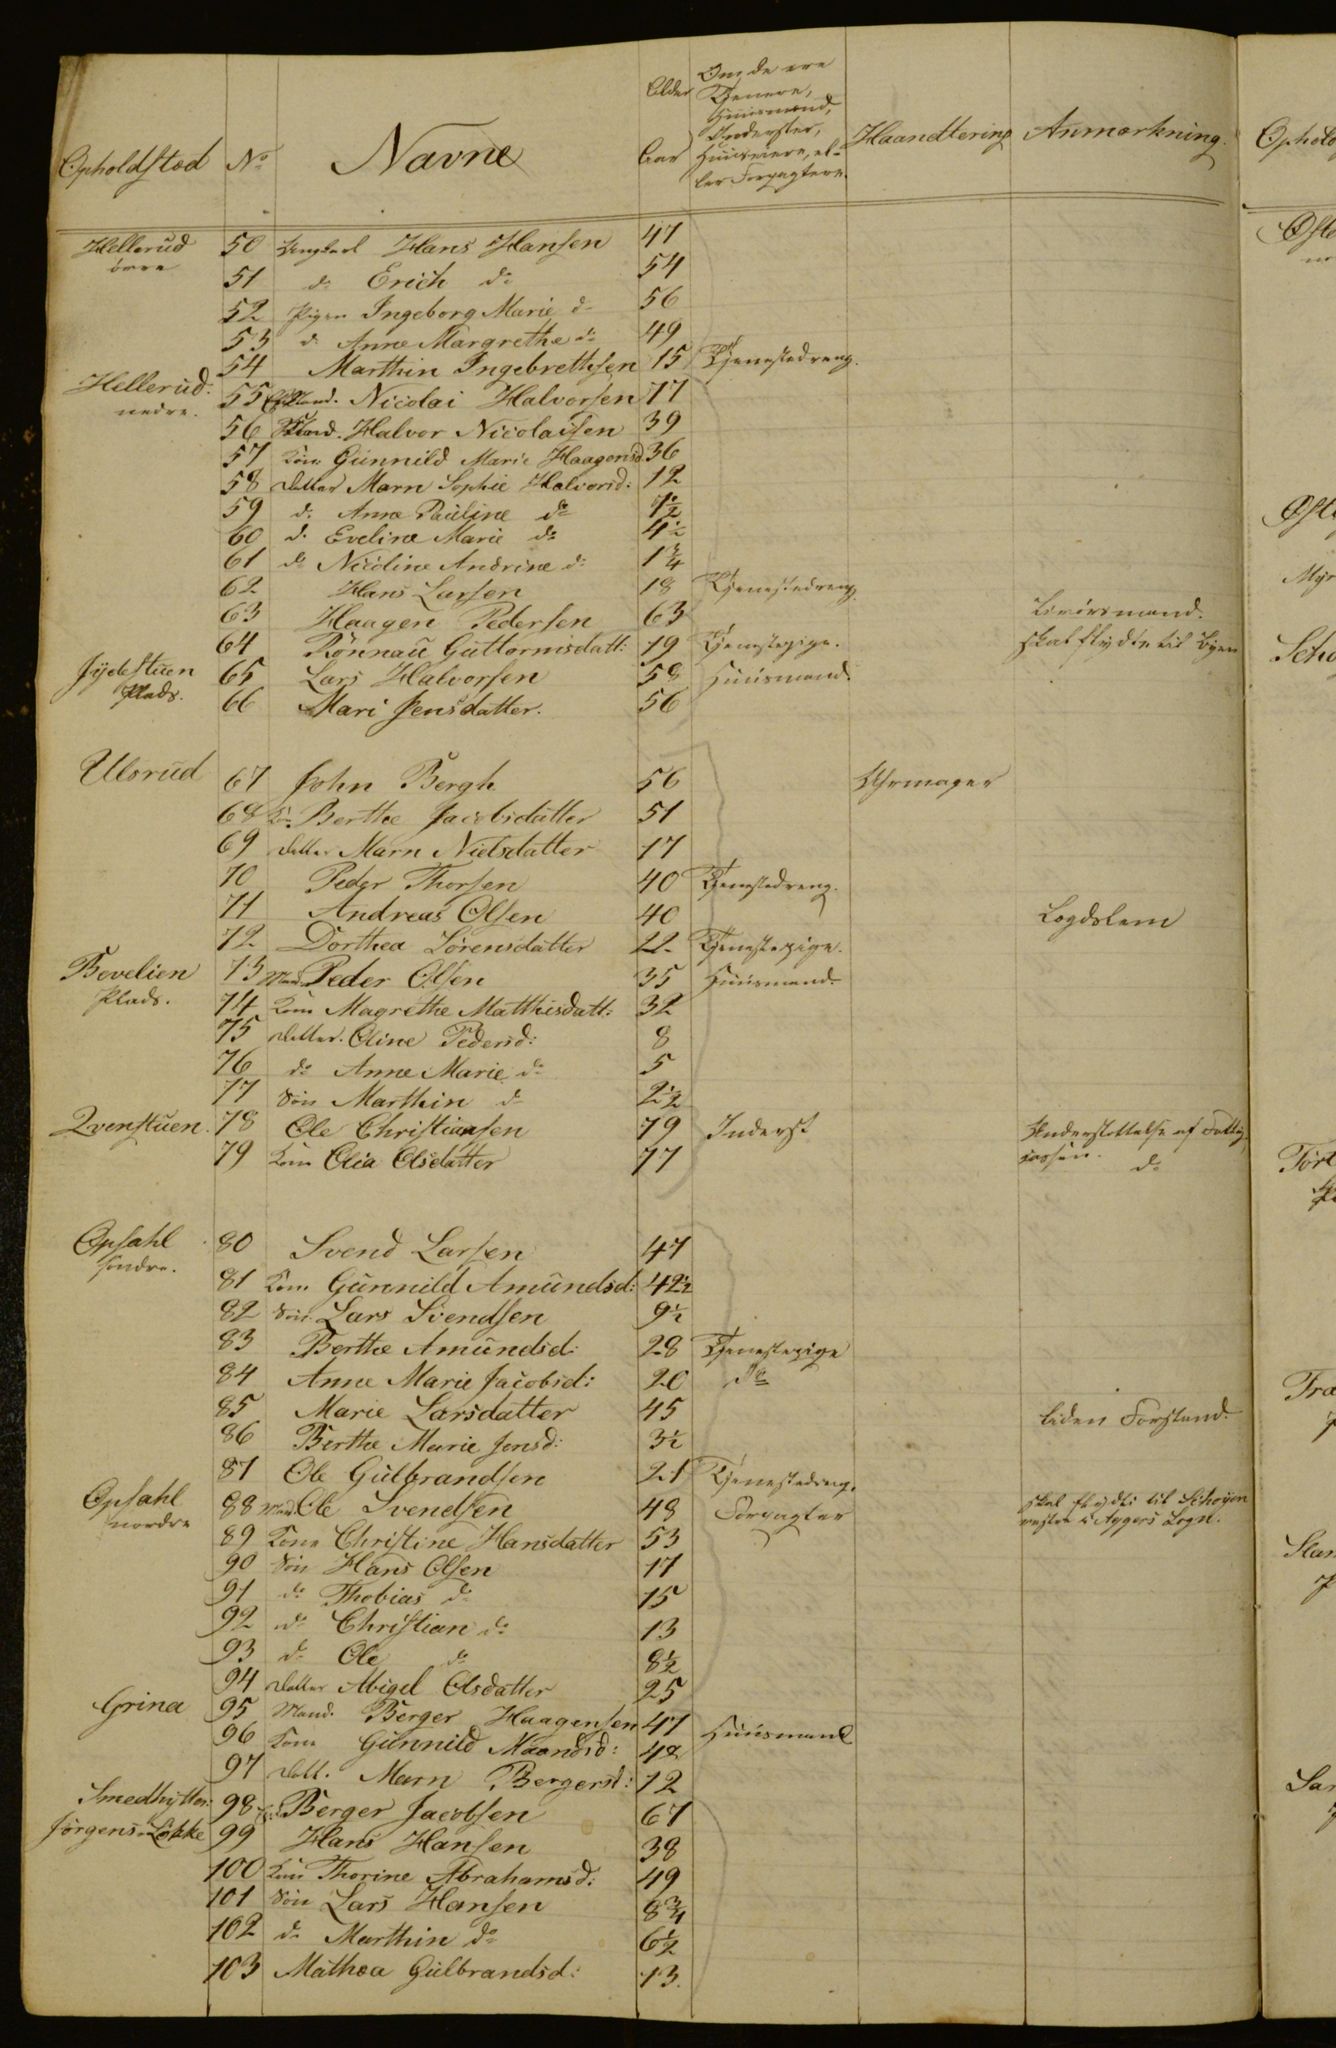 Opholdsted No Navne Alder Aar Om de ere Tjenere, Huusmænd, Inderster, Huuseiere, eller Forpagtere. Haandtering Anmærkning.
Hellerud øvre 50 Ungkarl Hans Hansen 47
51 do Erich do 54
52 Pigen Ingeborg Marie do 56
53 do Anne Margrethe do 49
54 Marthin Ingebrethsen 15 Tjenestedreng.
Hellerud nedre. 55 Nicolai Halvorsen 77
56 Halvor Nicolaisen 39
57 Kone Gunnild Marie Haagensd 36
58 Datter Marn Sophie Halvorsd: 12
59 do Anne Pauline do 9½
60 do Eveline Marie do 4½
61 do Nicoline Andrine do 1¾
62 Hans Larsen 18 Tjenestedreng
63 Haagen Pedersen 63
64 Rönnau Guttormsdatt: 19 Tjenestepige. skal flytte til Byen
Jydestuen Plads. 65 Lars Halvorsen 58 Huusmand.
66 Mari Jensdatter. 56
Ulsrud 67 John Bergh 56 Uhrmager
68 Kone Berthe Jacobsdatter 51
69 Datter Marn Nielsdatter 17
70 Peder Thorsen 40 Tjenestedreng.
71 Andreas Olsen 40 Lægdslem
72 Dorthea Sörensdatter 22 Tjenestepige.
Bevelien Plads. 73 Mand Peder Olsen 35 Huusmand.
74 Kone Magrethe Matthisdatt: 32
75 Datter. Oline Pedersd: 8
76 do Anne Marie do 5
77 Sön Marthin do 2½
Qvenstuen. 78 Ole Christiansen 79 Inderst Understøttelse af Fattigcassen.
79 Kone Olia Olsdatter 77 do
Opsahl søndre. 80 Svend Larsen 47
81 Kone Gunnild Amundsd: 42½
82 Sön Lars Svendsen 9½
83 Berthe Amundsd: 28 Tjenestepige
84 Anne Marie Jacobsd: 20 do
85 Marie Larsdatter 45 liden Forstand.
86 Berthe Marie Jensd: 3½
87 Ole Gulbrandsen 21 Tjenestedreng.
Opsahl nordre 88 Mand Ole Svendsen 48 Forpagter skal flytte til Schøyen vestre i Aggers Sogn.
89 Kone Christine Hansdatter 53
90 Sön Hans Olsen 17
91 do Thobias do 15
92 do Christian do 13
93 do Ole do 8½
94 Datter Abigel Olsdatter 25
Grina 95 Mand. Berger Haagensen 47 Huusmand
96 Kone Gunnild 48
97 Datt. Marn Bergersd: 12
Smedhytten: 98 Berger Jacobsen 67
Jørgens-Løkke 99 Hans Hansen 38
100 Kone Thorine Abrahamsd: 49
101 Sön Lars Hansen 8¾
102 do Marthin do 6½
103 Mathea Gulbrandsd: 13.